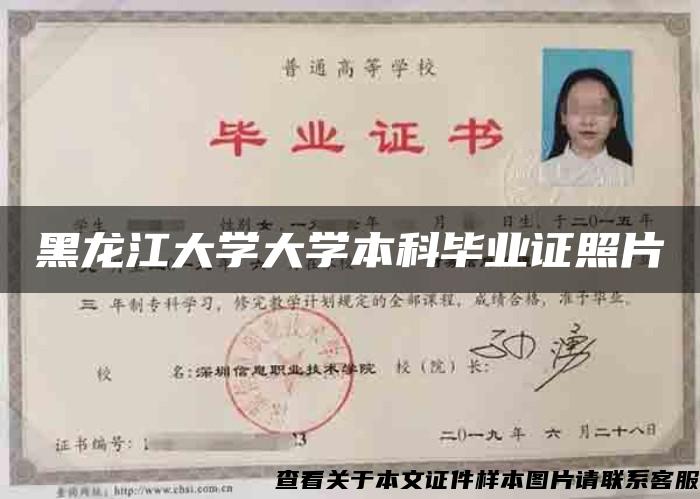 普通高等学校
毕业证书
学生 性别 女，一 年 月 日生，于二〇一五年
黑龙江大学大学本科毕业证照片
三 年制专科学习，修完教学计划规定的全部课程，成绩合格，准予毕业。
校 名：深圳信息职业技术学院 校（院）长：
证书编号：
二〇一九年 六 月二十八日
查询网址：http://www.chsi.com.cn
查看关于本文证件样本图片请联系客服